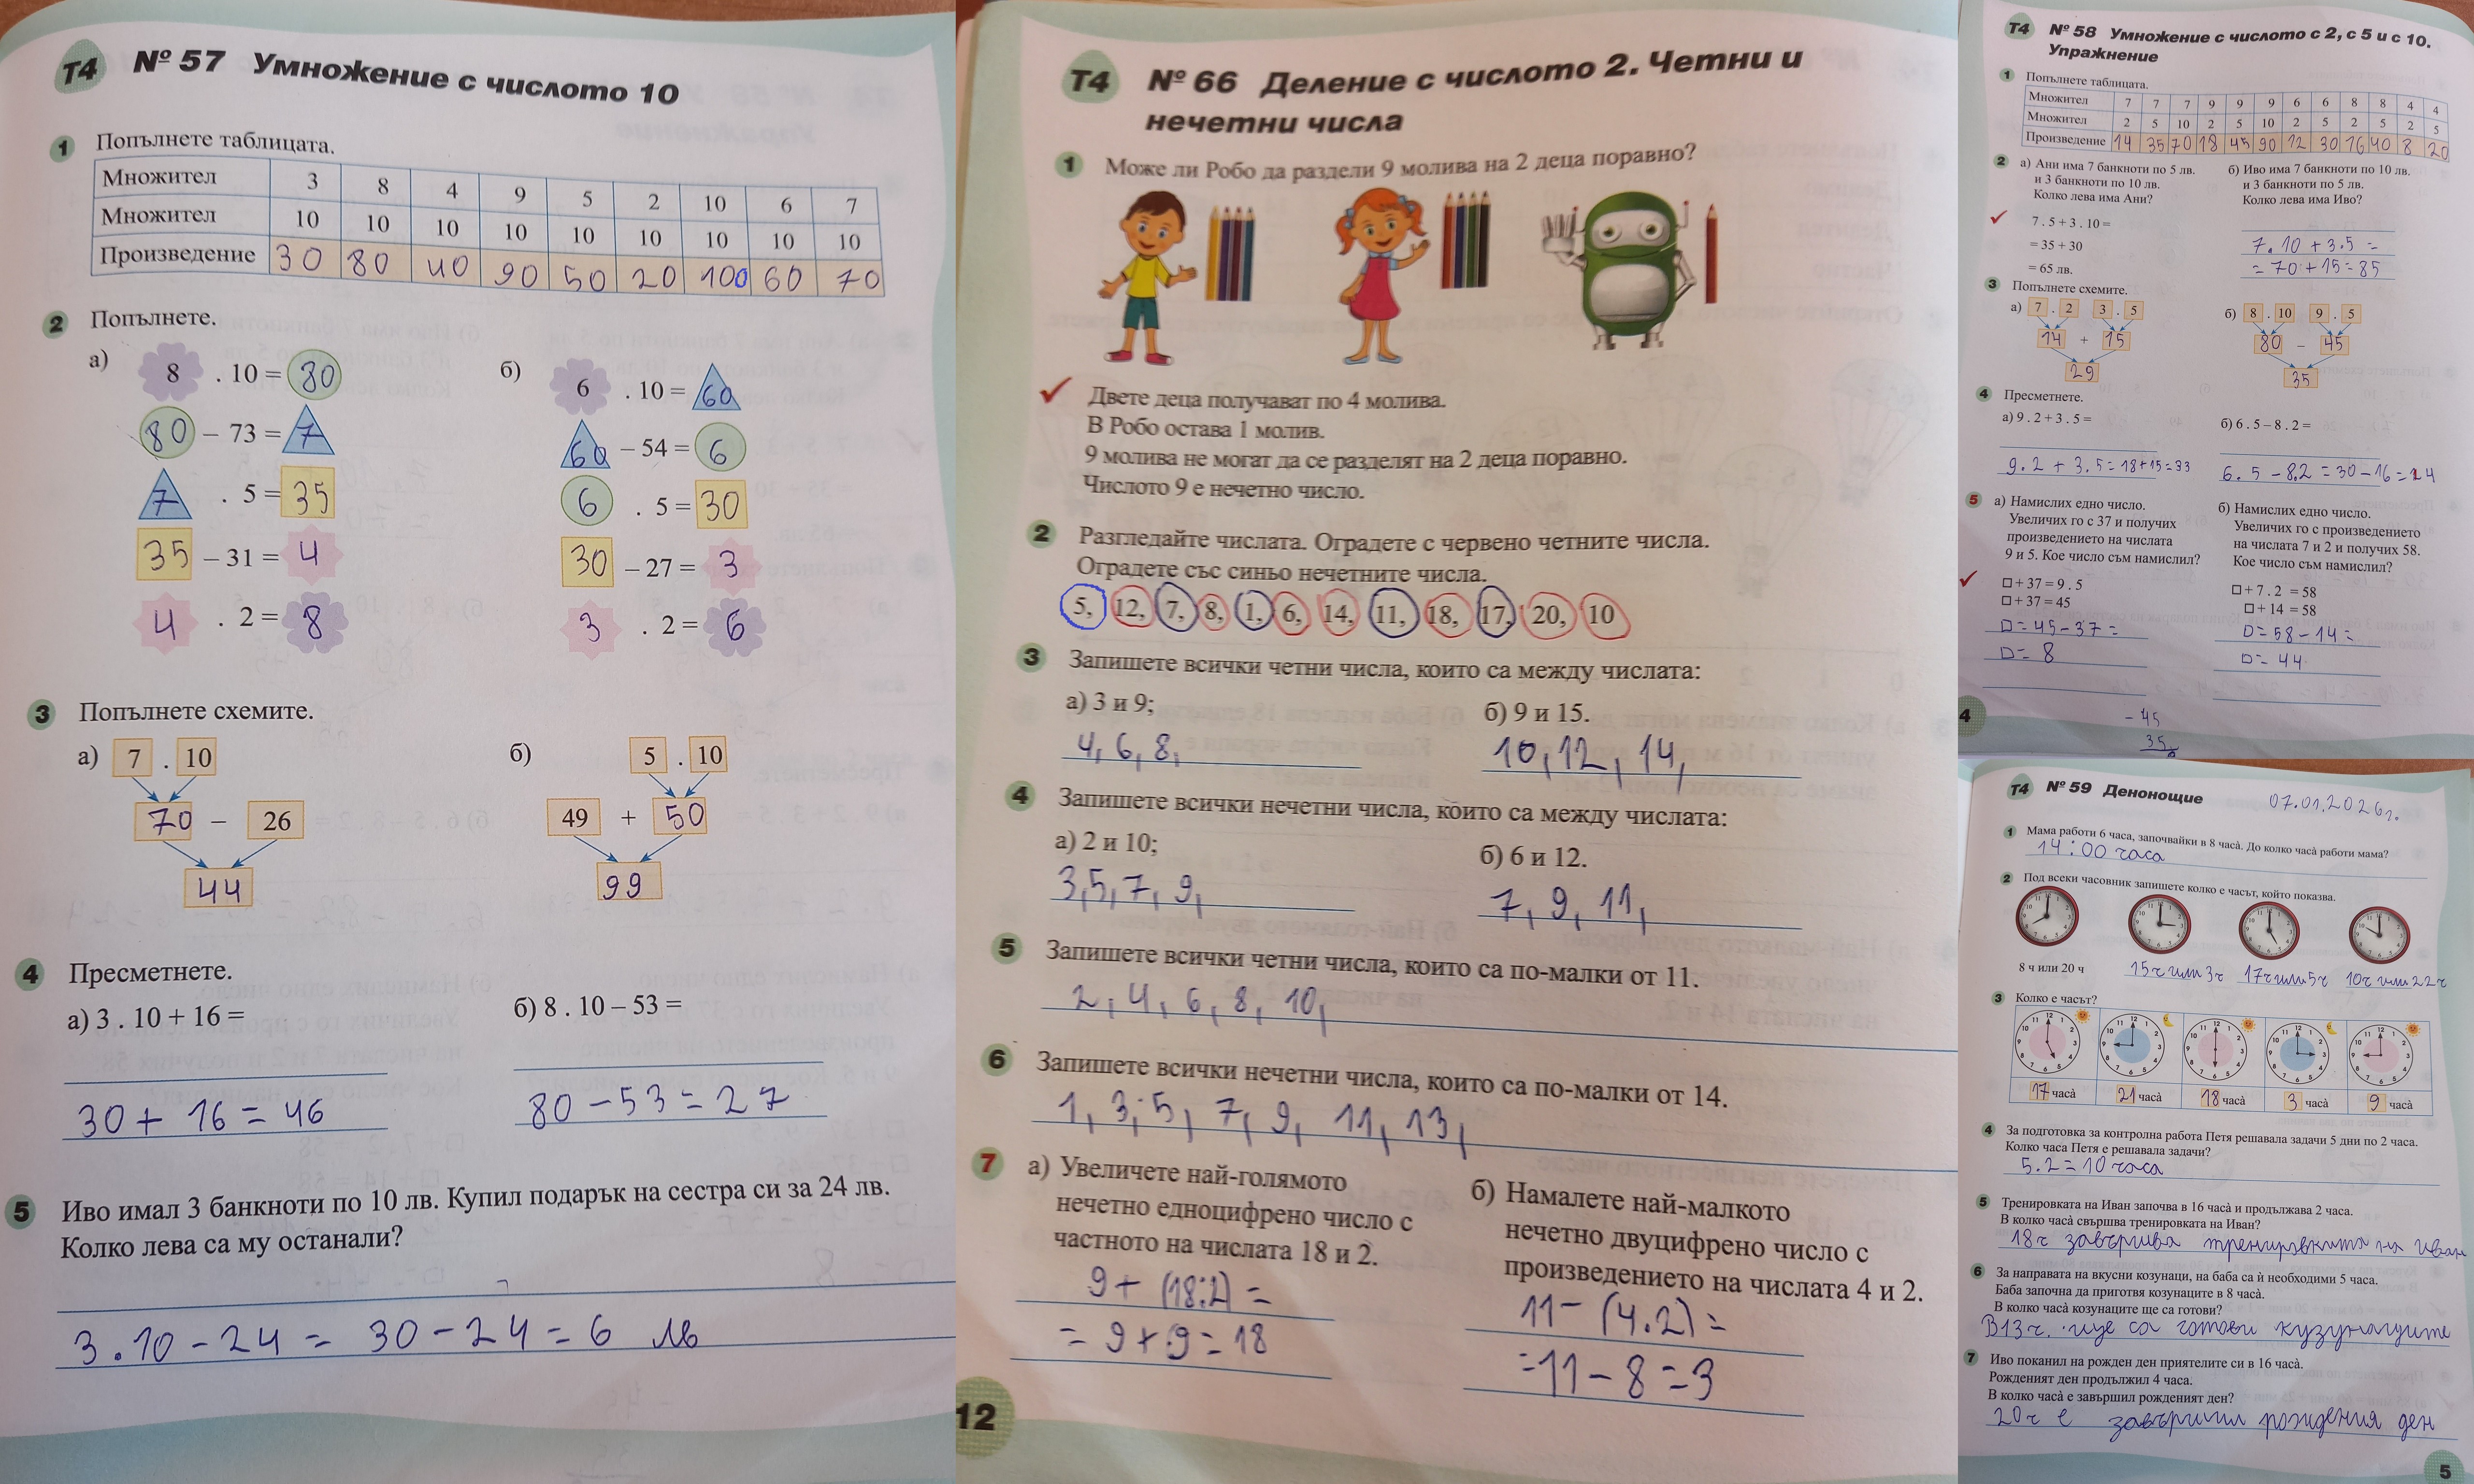 Т4 № 57 Умножение с числото 10
1 Попълнете таблицата.
Множител 3 8 4 9 5 2 10 6 7
Множител 10 10 10 10 10 10 10 10 10
Произведение 30 80 40 90 50 20 100 60 70
2 Попълнете.
а) 8 . 10 = 80
80 – 73 = 7
7 . 5 = 35
35 – 31 = 4
4 . 2 = 8
б) 6 . 10 = 60
60 – 54 = 6
6 . 5 = 30
30 – 27 = 3
3 . 2 = 6
3 Попълнете схемите.
а) 7 . 10
70 – 26
44
б) 5 . 10
49 + 50
99
4 Пресметнете.
а) 3 . 10 + 16 =
30 + 16 = 46
б) 8 . 10 – 53 =
80 – 53 = 27
5 Иво имал 3 банкноти по 10 лв. Купил подарък на сестра си за 24 лв.
Колко лева са му останали?
3 . 10 – 24 = 30 – 24 = 6 лв
Т4 № 66 Деление с числото 2. Четни и
нечетни числа
1 Може ли Робо да раздели 9 молива на 2 деца поравно?
Двете деца получават по 4 молива.
В Робо остава 1 молив.
9 молива не могат да се разделят на 2 деца поравно.
Числото 9 е нечетно число.
2 Разгледайте числата. Оградете с червено четните числа.
Оградете със синьо нечетните числа.
5, 12, 7, 8, 1, 6, 14, 11, 18, 17, 20, 10
3 Запишете всички четни числа, които са между числата:
а) 3 и 9;
4, 6, 8,
б) 9 и 15.
10, 12, 14,
4 Запишете всички нечетни числа, които са между числата:
а) 2 и 10;
3, 5, 7, 9,
б) 6 и 12.
7, 9, 11,
5 Запишете всички четни числа, които са по-малки от 11.
2, 4, 6, 8, 10,
6 Запишете всички нечетни числа, които са по-малки от 14.
1, 3, 5, 7, 9, 11, 13,
7 а) Увеличете най-голямото
нечетно едноцифрено число с
частното на числата 18 и 2.
9 + (18:2) =
= 9 + 9 = 18
б) Намалете най-малкото
нечетно двуцифрено число с
произведението на числата 4 и 2.
11 – (4.2) =
= 11 – 8 = 3
12
Т4 № 58 Умножение с числото с 2, с 5 и с 10.
Упражнение
1 Попълнете таблицата.
Множител 7 7 7 9 9 9 6 6 8 8 4 4
Множител 2 5 10 2 5 10 2 5 2 5 2 5
Произведение 14 35 70 18 45 90 12 30 16 40 8 20
2 а) Ани има 7 банкноти по 5 лв.
и 3 банкноти по 10 лв.
Колко лева има Ани?
7 . 5 + 3 . 10 =
= 35 + 30
= 65 лв.
б) Иво има 7 банкноти по 10 лв.
и 3 банкноти по 5 лв.
Колко лева има Иво?
7. 10 + 3.5 =
= 70 + 15 = 85
3 Попълнете схемите.
а) 7 . 2 3 . 5
14 + 15
29
б) 8 . 10 9 . 5
80 – 45
35
4 Пресметнете.
а) 9 . 2 + 3 . 5 =
9. 2 + 3. 5 = 18+15=33
б) 6 . 5 – 8 . 2 =
6. 5 – 8.2 = 30 – 16 = 14
5 а) Намислих едно число.
Увеличих го с 37 и получих
произведението на числата
9 и 5. Кое число съм намислил?
□ + 37 = 9 . 5
□ + 37 = 45
□ = 45 – 37 =
□ = 8
б) Намислих едно число.
Увеличих го с произведението
на числата 7 и 2 и получих 58.
Кое число съм намислил?
□ + 7 . 2 = 58
□ + 14 = 58
□ = 58 – 14 =
□ = 44
– 45
4
Т4 № 59 Денонощие 07.01.2026г.
1 Мама работи 6 часа, започвайки в 8 часà. До колко часà работи мама?
14:00 часа
2 Под всеки часовник запишете колко е часът, който показва.
8 ч или 20 ч 15ч или 3ч 17ч или 5ч 10ч или 22ч
3 Колко е часът?
17 часà 21 часà 18 часà 3 часà 9 часà
4 За подготовка за контролна работа Петя решавала задачи 5 дни по 2 часа.
Колко часа Петя е решавала задачи?
5.2=10 часа
5 Тренировката на Иван започва в 16 часà и продължава 2 часа.
В колко часà свършва тренировката на Иван?
18ч завършва тренировката на Иван
6 За направата на вкусни козунаци, на баба са ѝ необходими 5 часа.
Баба започна да приготвя козунаците в 8 часà.
В колко часà козунаците ще са готови?
В 13 ч. ще са готови кузунаците
7 Иво поканил на рожден ден приятелите си в 16 часà.
Рожденият ден продължил 4 часа.
В колко часà е завършил рожденият ден?
20ч е завършил рождения ден
5